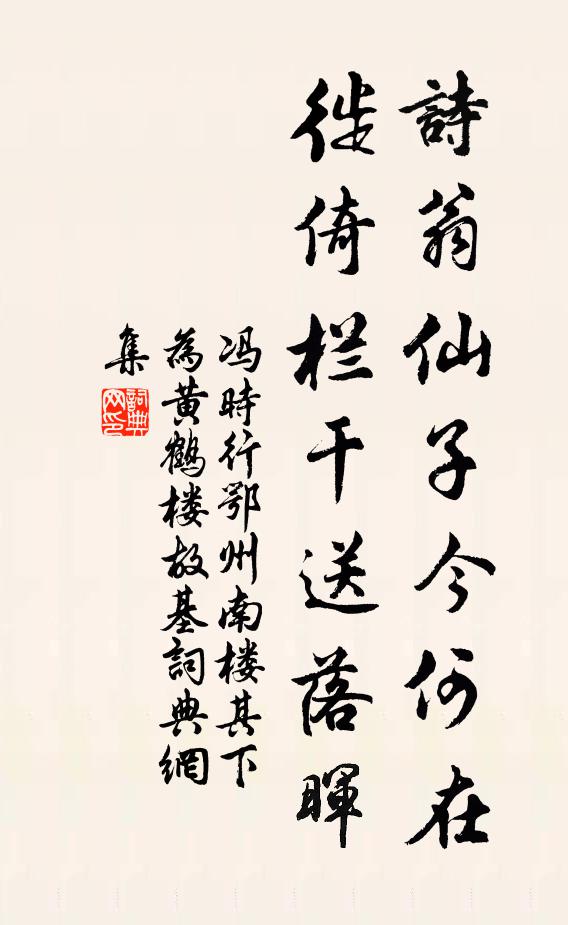 詩翁仙子今何在
徙倚栏干送落暉
冯時行鄂州南楼其下
為黄鶴楼故基詞典網
集
詞典
网印